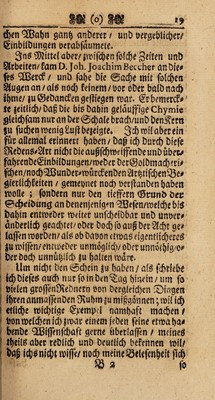 (o) 19
chen Wahn gantz anderer / und vergeblicher/
Einbildungen verabsäumete.
Ins Mittel aber/ zwischen solche Zeiten und
Arbeiten/ kam D. Joh. Joachim Beccher an die-
ses Werck / und sahe die Sache mit solchen
Augen an/ als noch keinem/ vor oder bald nach
ihme/ zu Gedancken gestiegen war. Er bemerck-
te zeitlich/ daß die bis dahin geläuffige Chymie
gleichsam nur an der Schale brach/ und den Kern
zu suchen wenig Lust bezeigte. Ich wil aber ein
für allemal erinnert haben/ daß ich durch diese
Redens-Art nicht die ausschweiffende und über-
fahrende Einbildungen/ weder der Goldmacheri-
schen/ noch Wunder-würckenden Artzischen Be-
gierlichkeiten / gemeynet noch verstanden haben
wolle; sondern nur den tieffern Grund der
Scheidung an denenjenigen Wesen/ welche bis
dahin entweder weiter unscheidbar und unver-
änderlich geachtet/ oder doch so auß der Acht ge-
lassen worden/ als ob davon etwas eigentlicheres
zu wissen/ entweder unmöglich/ oder unnöhtig/ o-
der doch unnützlich zu halten wäre.
Um nicht den Schein zu haben/ als schriebe
ich dieses auch nur so in den Tag hinein/ um so
vielen grossen Rednern von dergleichen Dingen
ihren anmassenden Ruhm zu mißgönnen; wil ich
etliche wichtige Exempel namhafft machen /
von welchen ich zwar einem jeden seine etwa ha-
bende Wissenschafft gerne überlassen/ meines
theils aber redlich und deutlich bekennen wil/
daß ichs nicht wisse/ noch meine Belesenheit sich
B 2 so